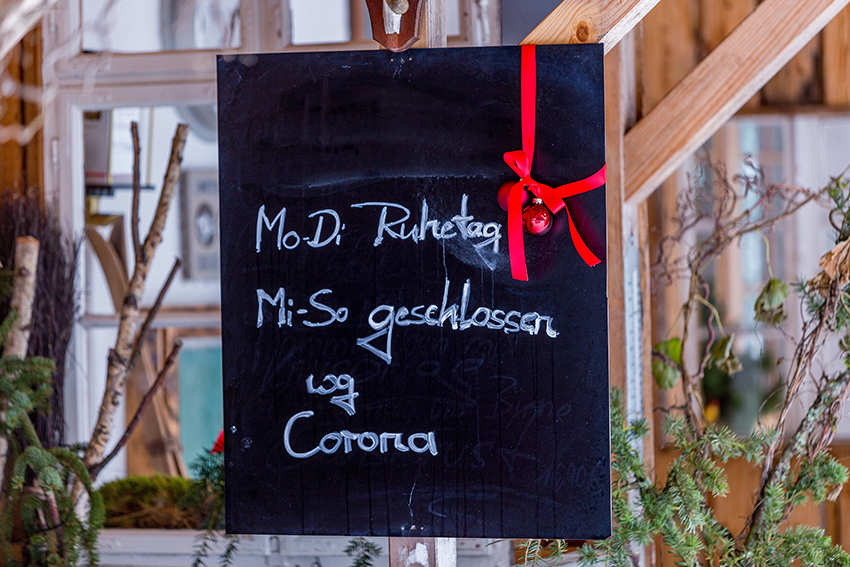 Mo-Di Ruhetag
Mi-So geschlossen
wg
Corona